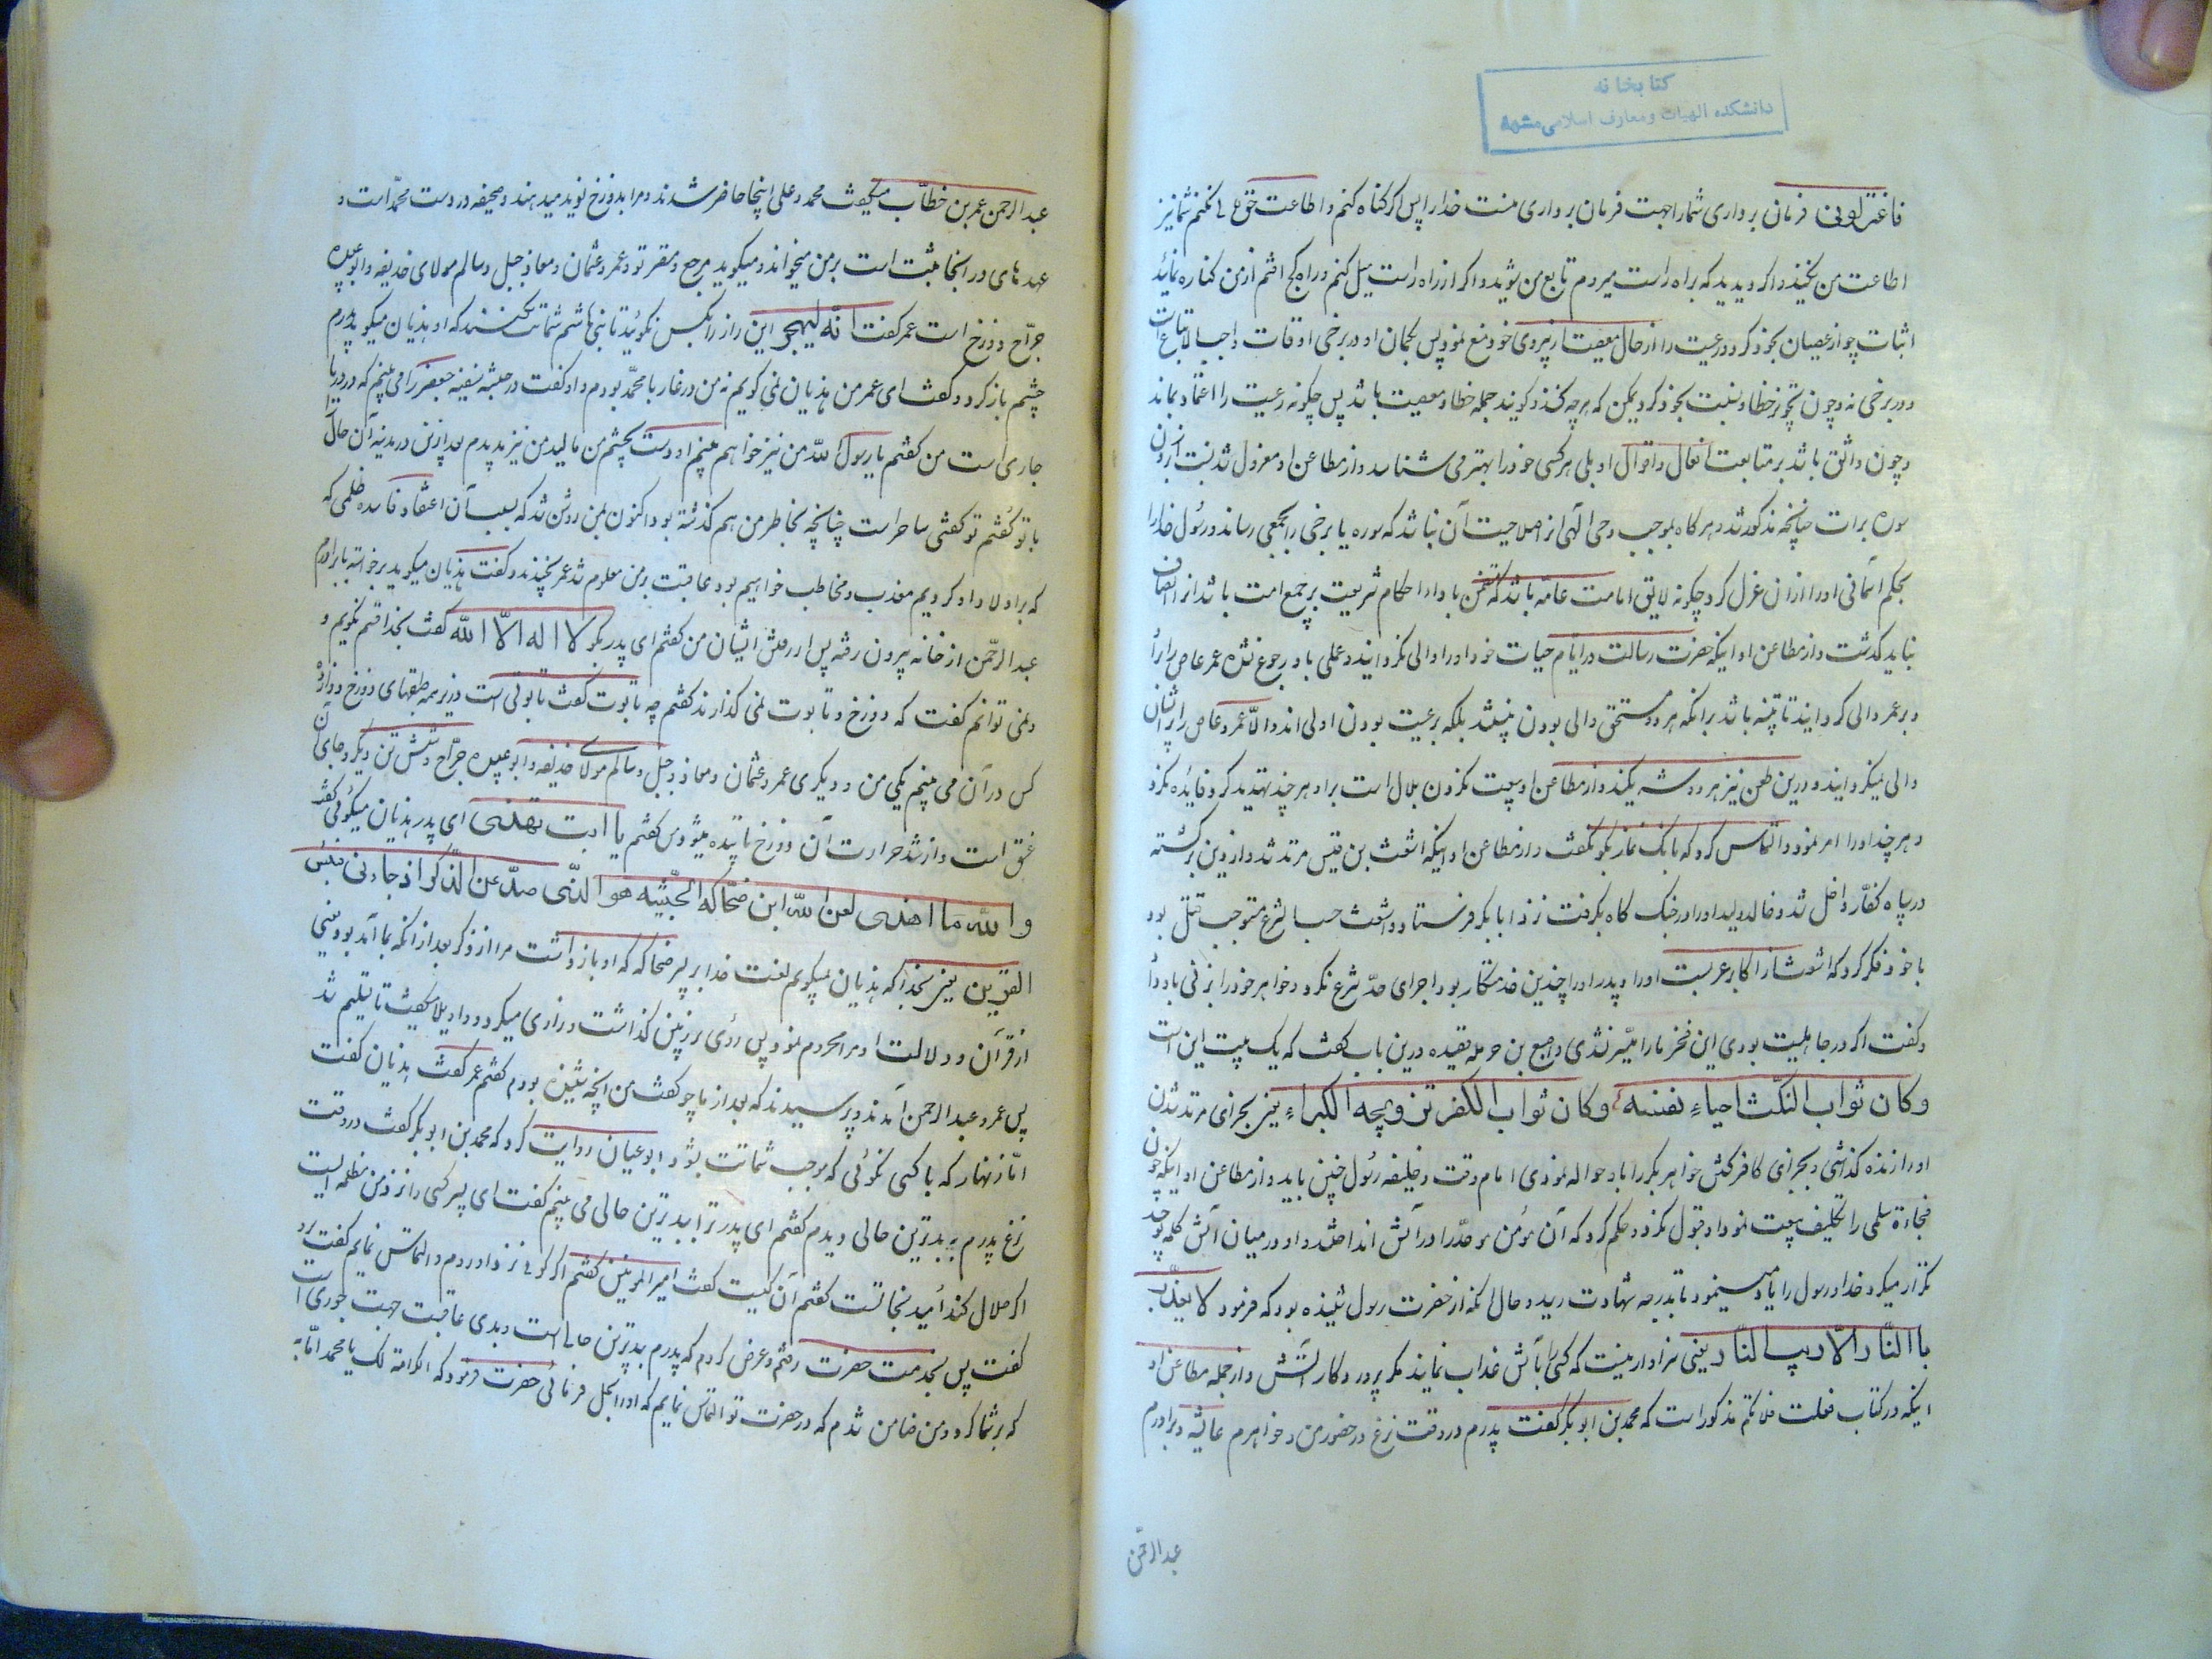 کتابخانه
دانشکده الهیات و معارف اسلامی مشهد
فاعتزلونی فرمان برداری شما را جهت فرمان برداری منست خدا را پس اگر گناه کنم و اطاعت حق تعالی نکنم شما نیز
اطاعت من نکنید و اگر دیدید که براه راست میروم تابع من شوید و اگر از راه راست میل کنم و راه کج افتم از من کناره نمائید
اثبات جواز عصیان بخود کرد و رعیت را از حال معصیت از پیروی خود منع نمود پس بگمان او در برخی اوقات واجب الاتباع است
و در برخی نه و چون تجویز خطا و نسبت بخود کرد ممکن که هر چه کند و گوید جمله خطا و معصیت باشد پس چگونه رعیت را اعتماد بماند
و چون واثق باشد بر متابعت افعال و اقوال او بلی هر کسی خود را بهتر می شناسد و از مطاعن او معزول شدنست از بردن
سوره برات چنانچه مذکور شد و هر گاه بموجب وحی الهی از صلاحیت آن نباشد که سوره یا برخی را بجمعی رساند و رسول خدا را
بحکم آسمانی او را از آن عزل کرد چگونه لایق امامت عامه باشد که متضمن با ادا احکام شریعت بر جمیع امت باشد از انصاف
نباید گذشت و از مطاعن او اینکه حضرت رسالت در ایام حیات خود او را والی نگردانید و عملی باو رجوع نشده عمر عاص را برو
و بر عمر والی گردانید تا تنبیه باشد بر آنکه هر دو مستحق والی بودن نیستند بلکه برعیت بودن اولی اند و الا عمرو عاص را بر ایشان
والی نمیگردانید و درین طعن نیز هر دو شریکند و از مطاعن او بیعت نکردن بلال است بر او هر چند تهدید کرد فایده نکرد
و هر چند او را امر نمود و التماس کرد که بانک نماز بگو نگفت و از مطاعن او اینکه اشعث بن قیس مرتد شد و از دین برگشته
در سپاه کفار داخل شد و خالد ولید او را در جنک گاه بگرفت نزد ابابکر فرستاد و اشعث حسب الشرع مستوجب قتل بود
با خود فکر کرد که اشعث از اکابر عربست او را و پدر او را چندین خدمتکار بود اجرای حد شرع نکرد و خواهر خود را بزنی باو داد
و گفت اگر در جاهلیت بودی این فخر ما را میسر نشدی و اصبع بن حرمله قصیده درین باب گفت که یک بیت این است
وکان ثواب النکث احیاء نفسه وکان ثواب الکفر تزویجه الکبراء یعنی بجزای مرتد شدن
او را زنده گذاشتی و بجزای کافر گشتن خواهر بکر را باو حواله نمودی امام وقت و خلیفه رسول چنین باید و از مطاعن او اینکه چون
فجاءة سلمی را تکلیف بیعت نمود او قبول نکرد و حکم کرد که آن مؤمن موحد را در آتش انداختند و او در میان آتش کلمه توحید
تکرار میکرد و خدا و رسول را یاد مینمود تا بدرجه شهادت رسید و حال آنکه از حضرت رسول شنیده بود که فرمود لا یعذب
بالنار الا رب النار یعنی سزاوار نیست که کسی را بآتش عذاب نماید مگر پروردگار آتش و از جمله مطاعن او
اینکه در کتاب فعلت فلا تلم مذکور است که محمد بن ابوبکر گفت پدرم در وقت نزع در حضور من و خواهرم عایشه و برادرم
عبدالرحمن
عبدالرحمن عمر بن خطاب میگفت محمد و علی اینجا حاضر شدند و مرا بدوزخ نوید میدهند و صحیفه در دست محمد است و
عهدهای در آنجا ثبت است بر من میخواند و میگوید مرجع و مقر تو و عمر و عثمان و معاذ جبل و سالم مولای حذیفه و ابوعبیده
جراح دوزخ است عمر گفت انه لیهجر این راز را بکس نگوئید تا بنی هاشم شماتت نکنند که او هذیان میگوید پدرم
چشم باز کرد و گفت ای عمر من هذیان نمی گویم نه من در غار با محمد بودم و او گفت در حبشه سفینه جعفر را می بینم که در دریا
جاری است من گفتم یا رسول الله من نیز خواهم بینم او دست بچشم من مالید من نیز بدیدم بعد از ین در مدینه آن حال
با تو گفتم تو گفتی ساحر است چنانچه بخاطر من هم گذشته بود اکنون بمن روشن شد که بسبب آن اعتقاد فاسده ظلمی که
که بر اولاد او کردیم معذب و مخاطب خواهیم بود عاقبت بر من معلوم شد عمر بخندید و گفت هذیان میگوید برخواسته با برادرم
عبدالرحمن از خانه بیرون رفته پس از رفتن ایشان من گفتم ای پدر بگو لا اله الا الله گفت بخدا قسم نگویم و
و نمی توانم گفت که دوزخ و تابوت نمی گذارند گفتم چه تابوت گفت تابوتی است در زیر همه طبقهای دوزخ دوازده
کس در آن می بینم یکی من و دیگری عمر و عثمان و معاذ و جبل و سالم مولای حذیفه و ابوعبیده جراح و شش تن دیگر و جای آن
عمیق است و از شدت حرارت آن دوزخ تابیده میشود پس گفتم یا ابت تهذی ای پدر هذیان میگوئی گفت
والله ما اهذی لعن الله ابن ضحاکه الحبشیه هو الذی صد عن الذکر اذ جاءنی فبئس
القرین یعنی بخدا که هذیان نمیگویم لعنت خدا بر پسر ضحاکه که او باز داشت مرا از ذکر بعد از آنکه بما آمده بود یعنی
از قرآن و دلالت او مرا محروم نمود پس روی بر زمین گذاشت و زاری میکرد و واویلا میگفت تا تسلیم شد
پس عمر و عبدالرحمن آمدند و پرسیدند که بعد از ما چه گفت من آنچه شنیده بودم گفتم عمر گفت هذیان گفت
اما زنهار که با کسی نگوئی که موجب شماتت بشود ابوعیان روایت کرد که محمد بن ابوبکر گفت در وقت
نزع پدرم به بدترین حالی دیدم گفتم ای پدر ترا ببدترین حالی می بینم گفت ای پسر کسی را نزد من مظلمه ایست
اگر حلال کند امید نجاتست گفتم آن کیست گفت امیرالمؤمنین گفتم اگر گوئی نزد او روم و التماس نمایم گفت برو
گفت پس بخدمت حضرت رفتم و عرض کردم که پدرم ببدترین حالی است و بدی عاقبت جهت جوری است
که بر شما کرد و من ضامن شدم که در حضرت تو التماس نمایم که او را بحل فرمائی حضرت فرمود که الکرامة لک یا محمد اما به